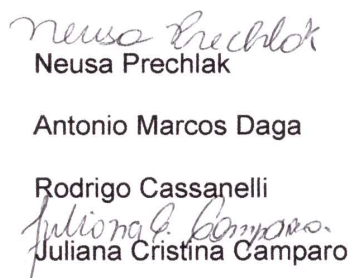 Neusa Prechlak
Neusa Prechlak
Antonio Marcos Daga
Rodrigo Cassanelli
Juliana C. Camparo.
Juliana Cristina Camparo